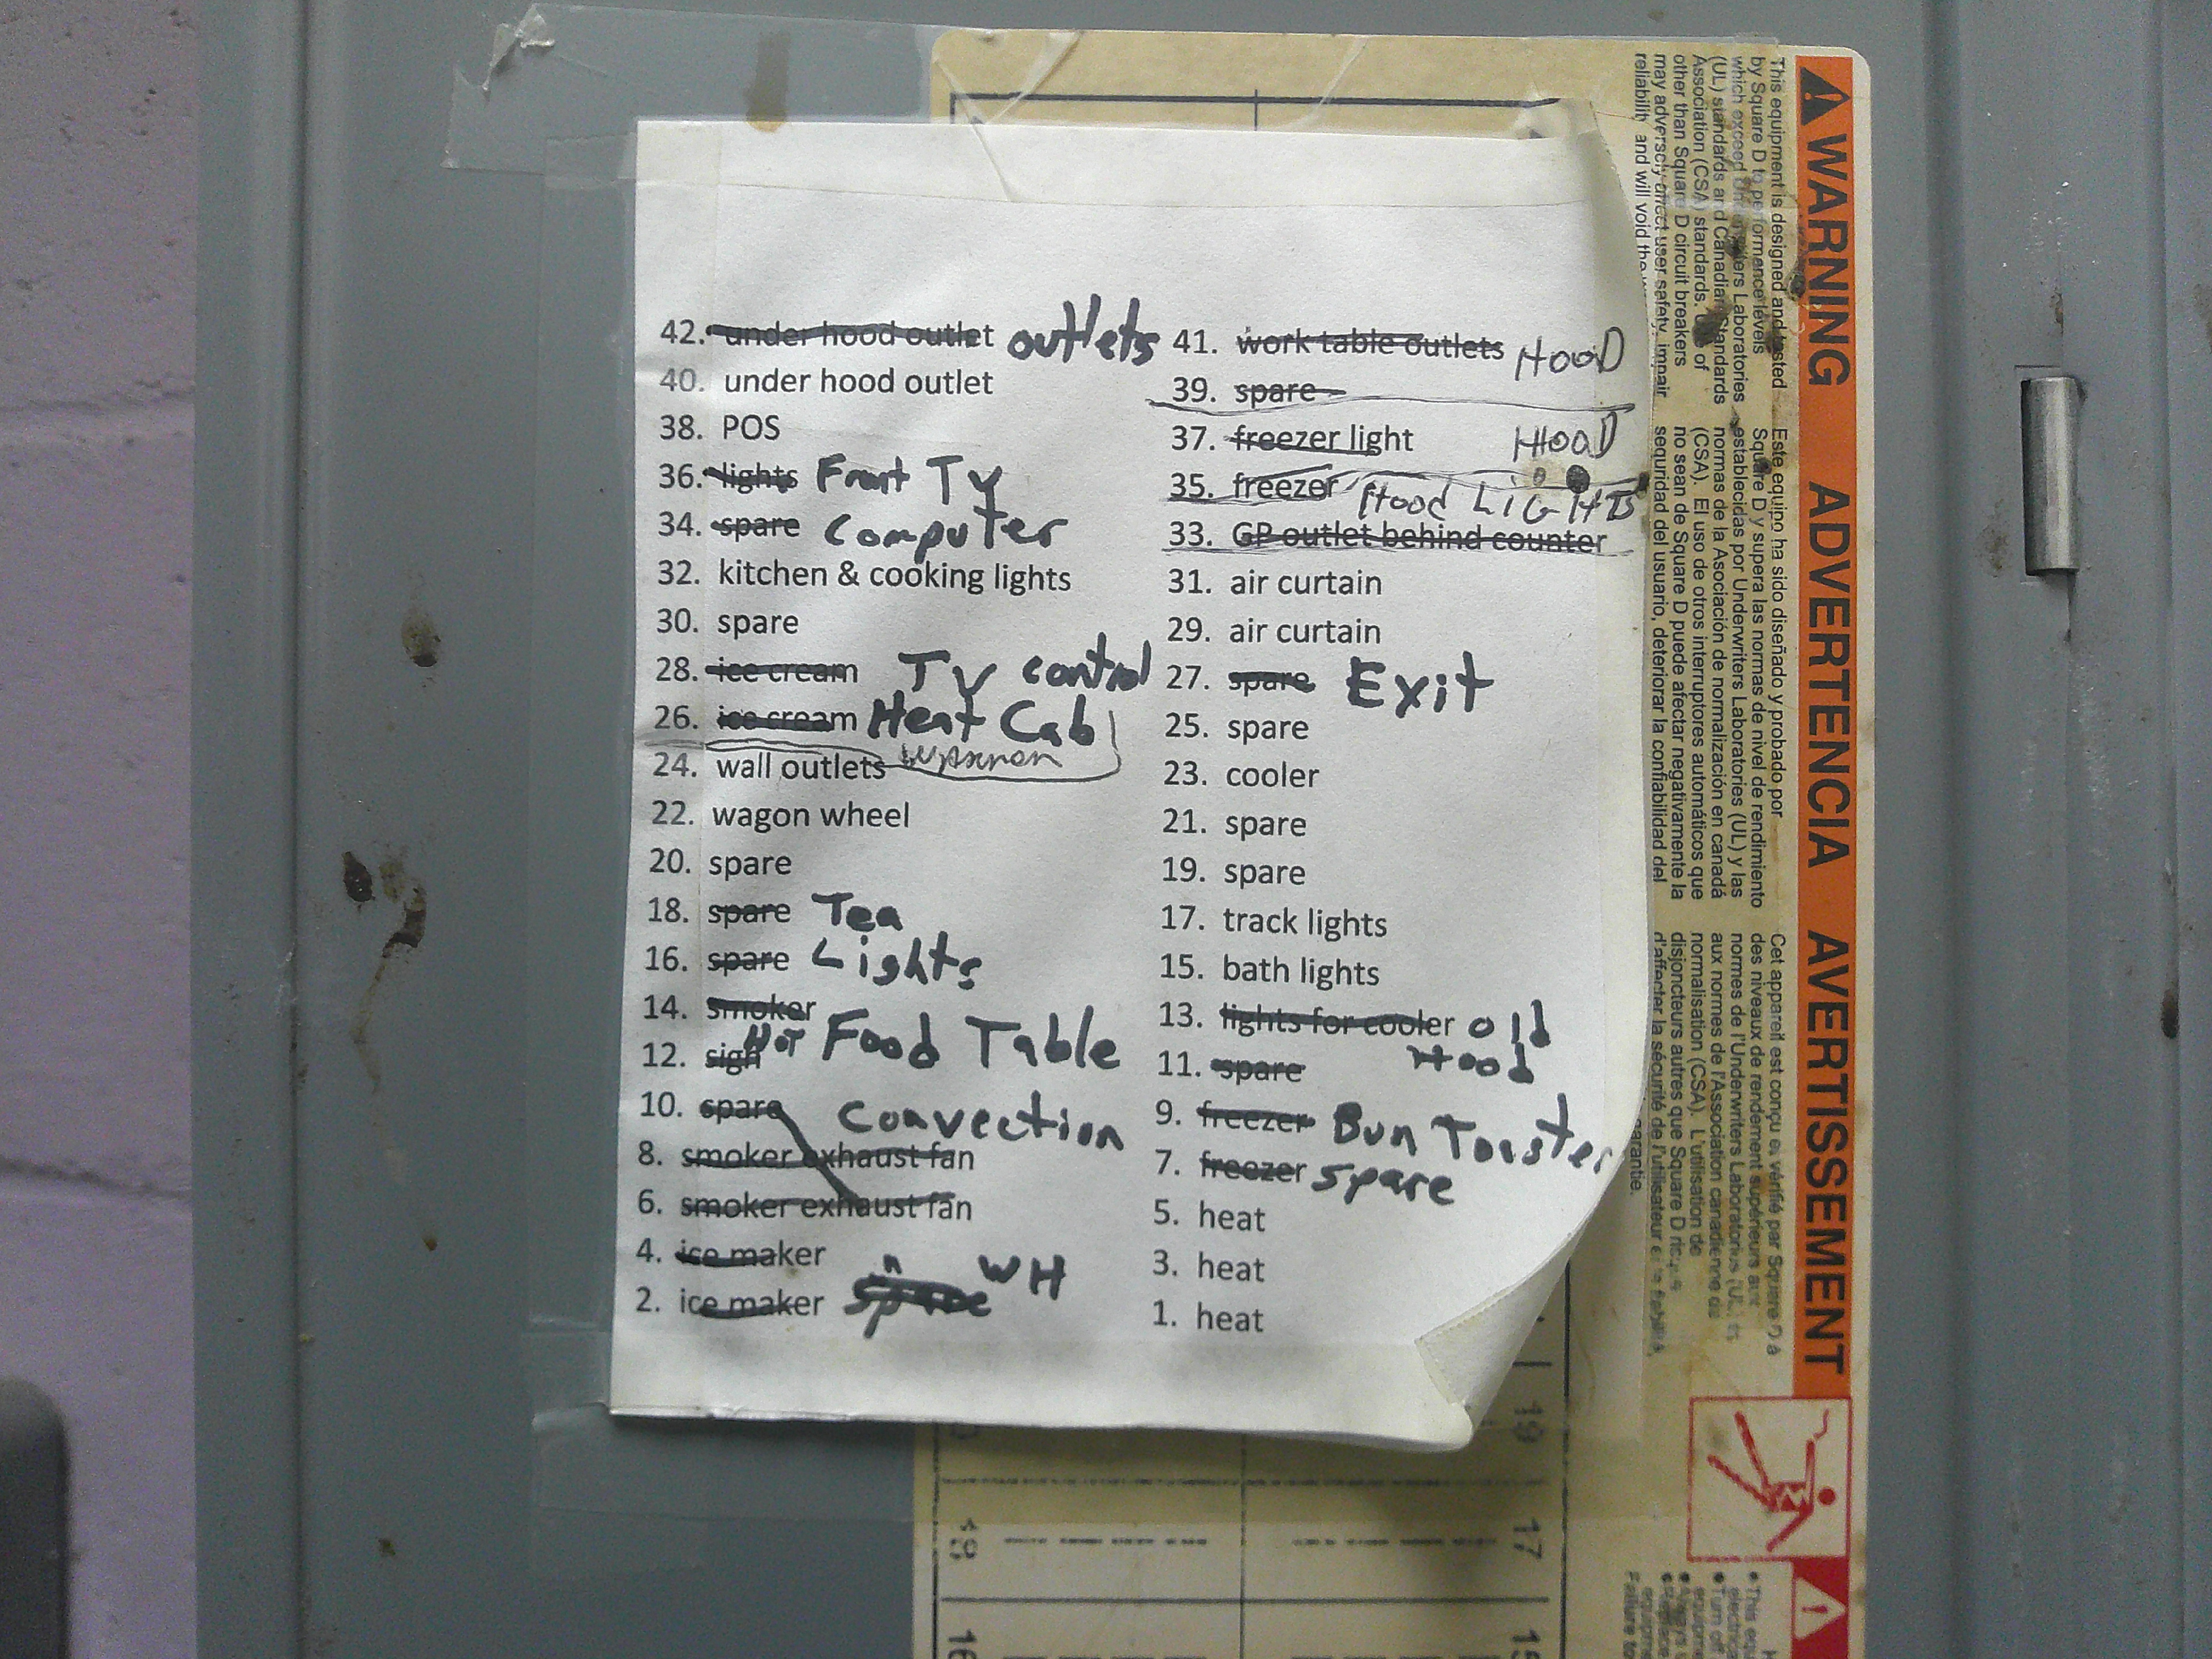 42. under hood outlet outlets
40. under hood outlet
38. POS
36. lights Front TV
34. spare Computer
32. kitchen & cooking lights
30. spare
28. ice cream TV control
26. ice cream Heat Cab
24. wall outlets
22. wagon wheel
20. spare
18. spare Tea
16. spare Lights
14. smoker
HOT Food Table
12. sign
10. spare Convection
8. smoker exhaust fan
6. smoker exhaust fan
4. ice maker WH
2. ice maker spare
41. work table outlets HOOD
39. spare
37. freezer light HOOD
35. freezer Hood LiGHTS
33. GP outlet behind counter
31. air curtain
29. air curtain
27. spare Exit
25. spare
23. cooler
21. spare
19. spare
17. track lights
15. bath lights
13. lights for cooler old
11. spare Hood
9. freezer Bun Toaster
7. freezer spare
5. heat
3. heat
1. heat
WARNING ADVERTENCIA AVERTISSEMENT
This equipment is designed and tested
by Square D to performance levels
which exceed Underwriters Laboratories
(UL) standards and Canadian Standards
Association (CSA) standards. Use of
other than Square D circuit breakers
may adversely affect user safety, impair
reliability and will void the
Este equipo ha sido diseñado y probado por
Square D y supera las normas de nivel de rendimiento
establecidas por Underwriters Laboratories (UL) y las
normas de la Asociación de normalización en canadá
(CSA). El uso de otros interruptores automáticos que
no sean de Square D puede afectar negativamente la
seguridad del usuario, deteriorar la confiabilidad del
Cet appareil est conçu et vérifié par Square D à
des niveaux de rendement supérieurs aux
normes de l'Underwriters Laboratories (UL) et
aux normes de l'Association canadienne de
normalisation (CSA). L'utilisation de
disjoncteurs autres que Square D risque
d'affecter la sécurité de l'utilisateur et la fiabilité,
garantie.
19
18 17
16 15